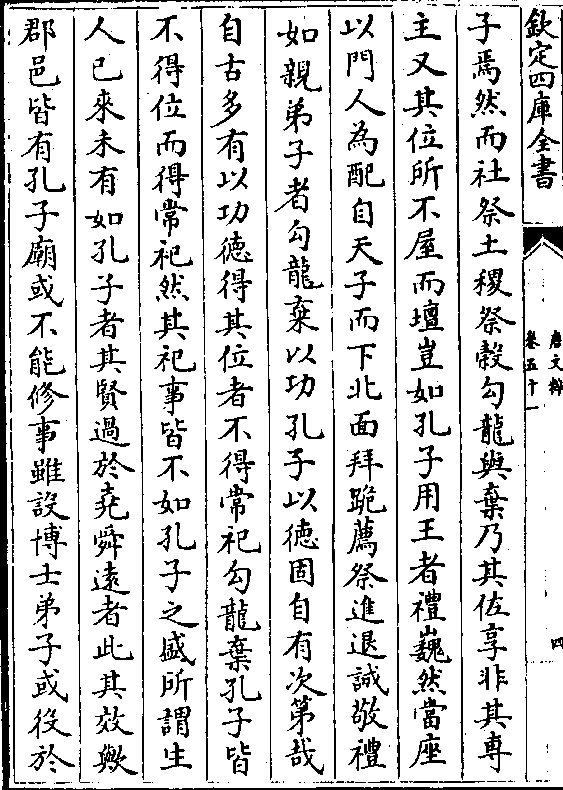 欽定四庫全書
唐文粹
卷五十一
四
子焉然而社祭土稷祭穀勾龍與棄乃其佐享非其専
主又其位所不屋而壇豈如孔子用王者禮巍然當座
以門人為配自天子而下北面拜跪薦祭進退誠敬禮
如親弟子者勾龍棄以功孔子以徳固自有次第哉
自古多有以功徳得其位者不得常祀勾龍棄孔子皆
不得位而得常祀然其祀事皆不如孔子之盛所謂生
人已來未有如孔子者其賢過於堯舜逺者此其效歟
郡邑皆有孔子廟或不能修事雖設博士弟子或役於